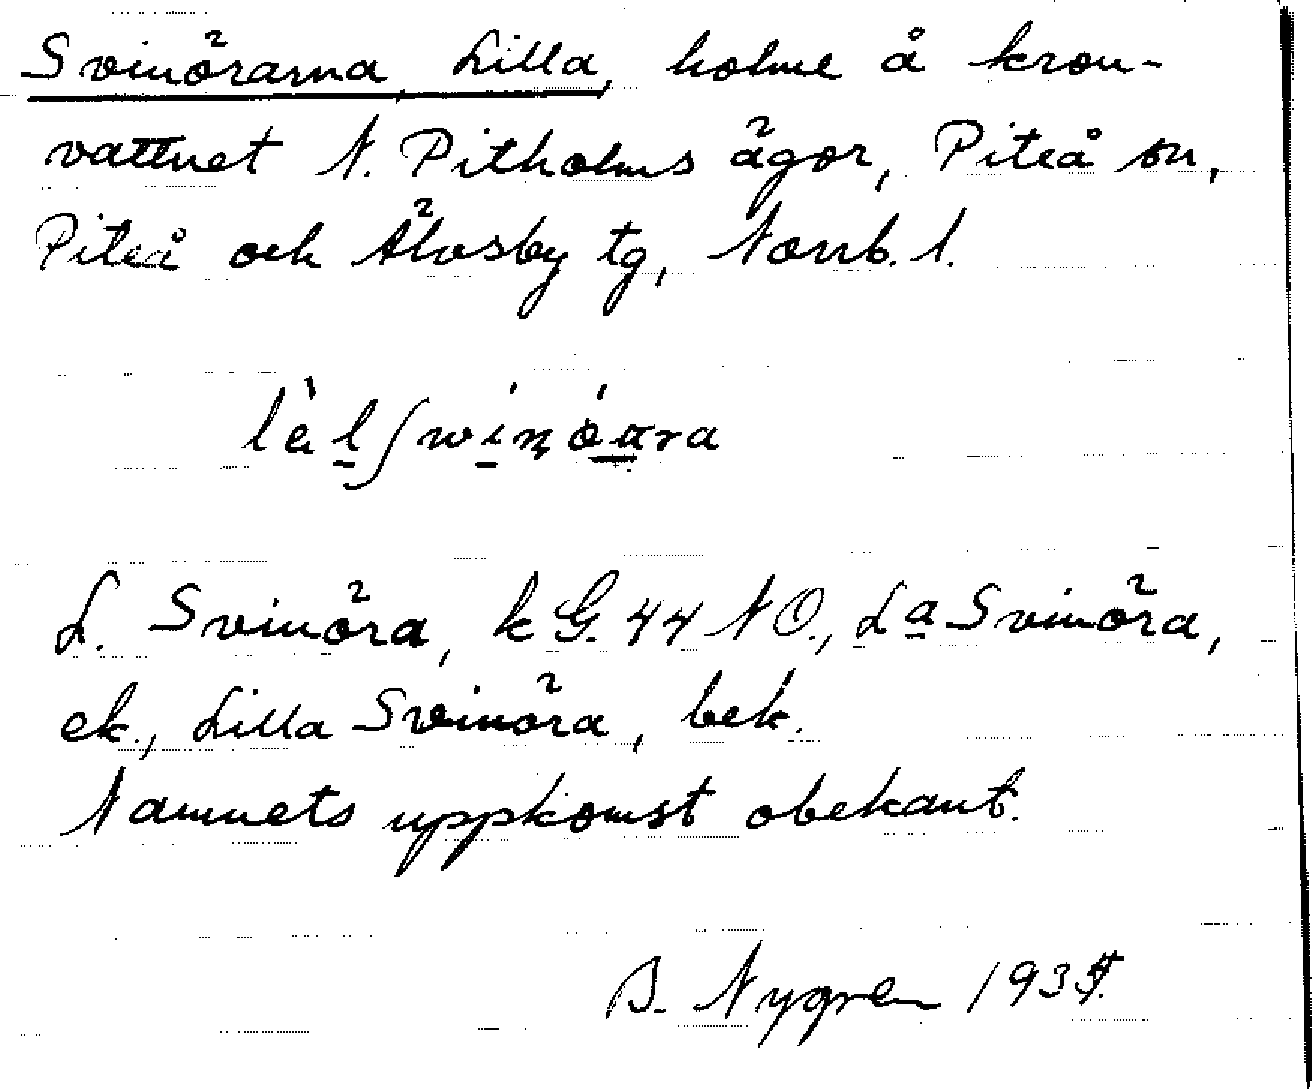 Svinörarna, Lilla, holme å kron-
vattnet N. Pitholms ägor, Piteå sn,
Piteå och Älvsby tg, Norrb. l.
L. Svinöra, k G. 44 NO., La Svinöra,
ek., Lilla Svinöra, bek.
Namnets uppkomst obekant.
B. Nygren